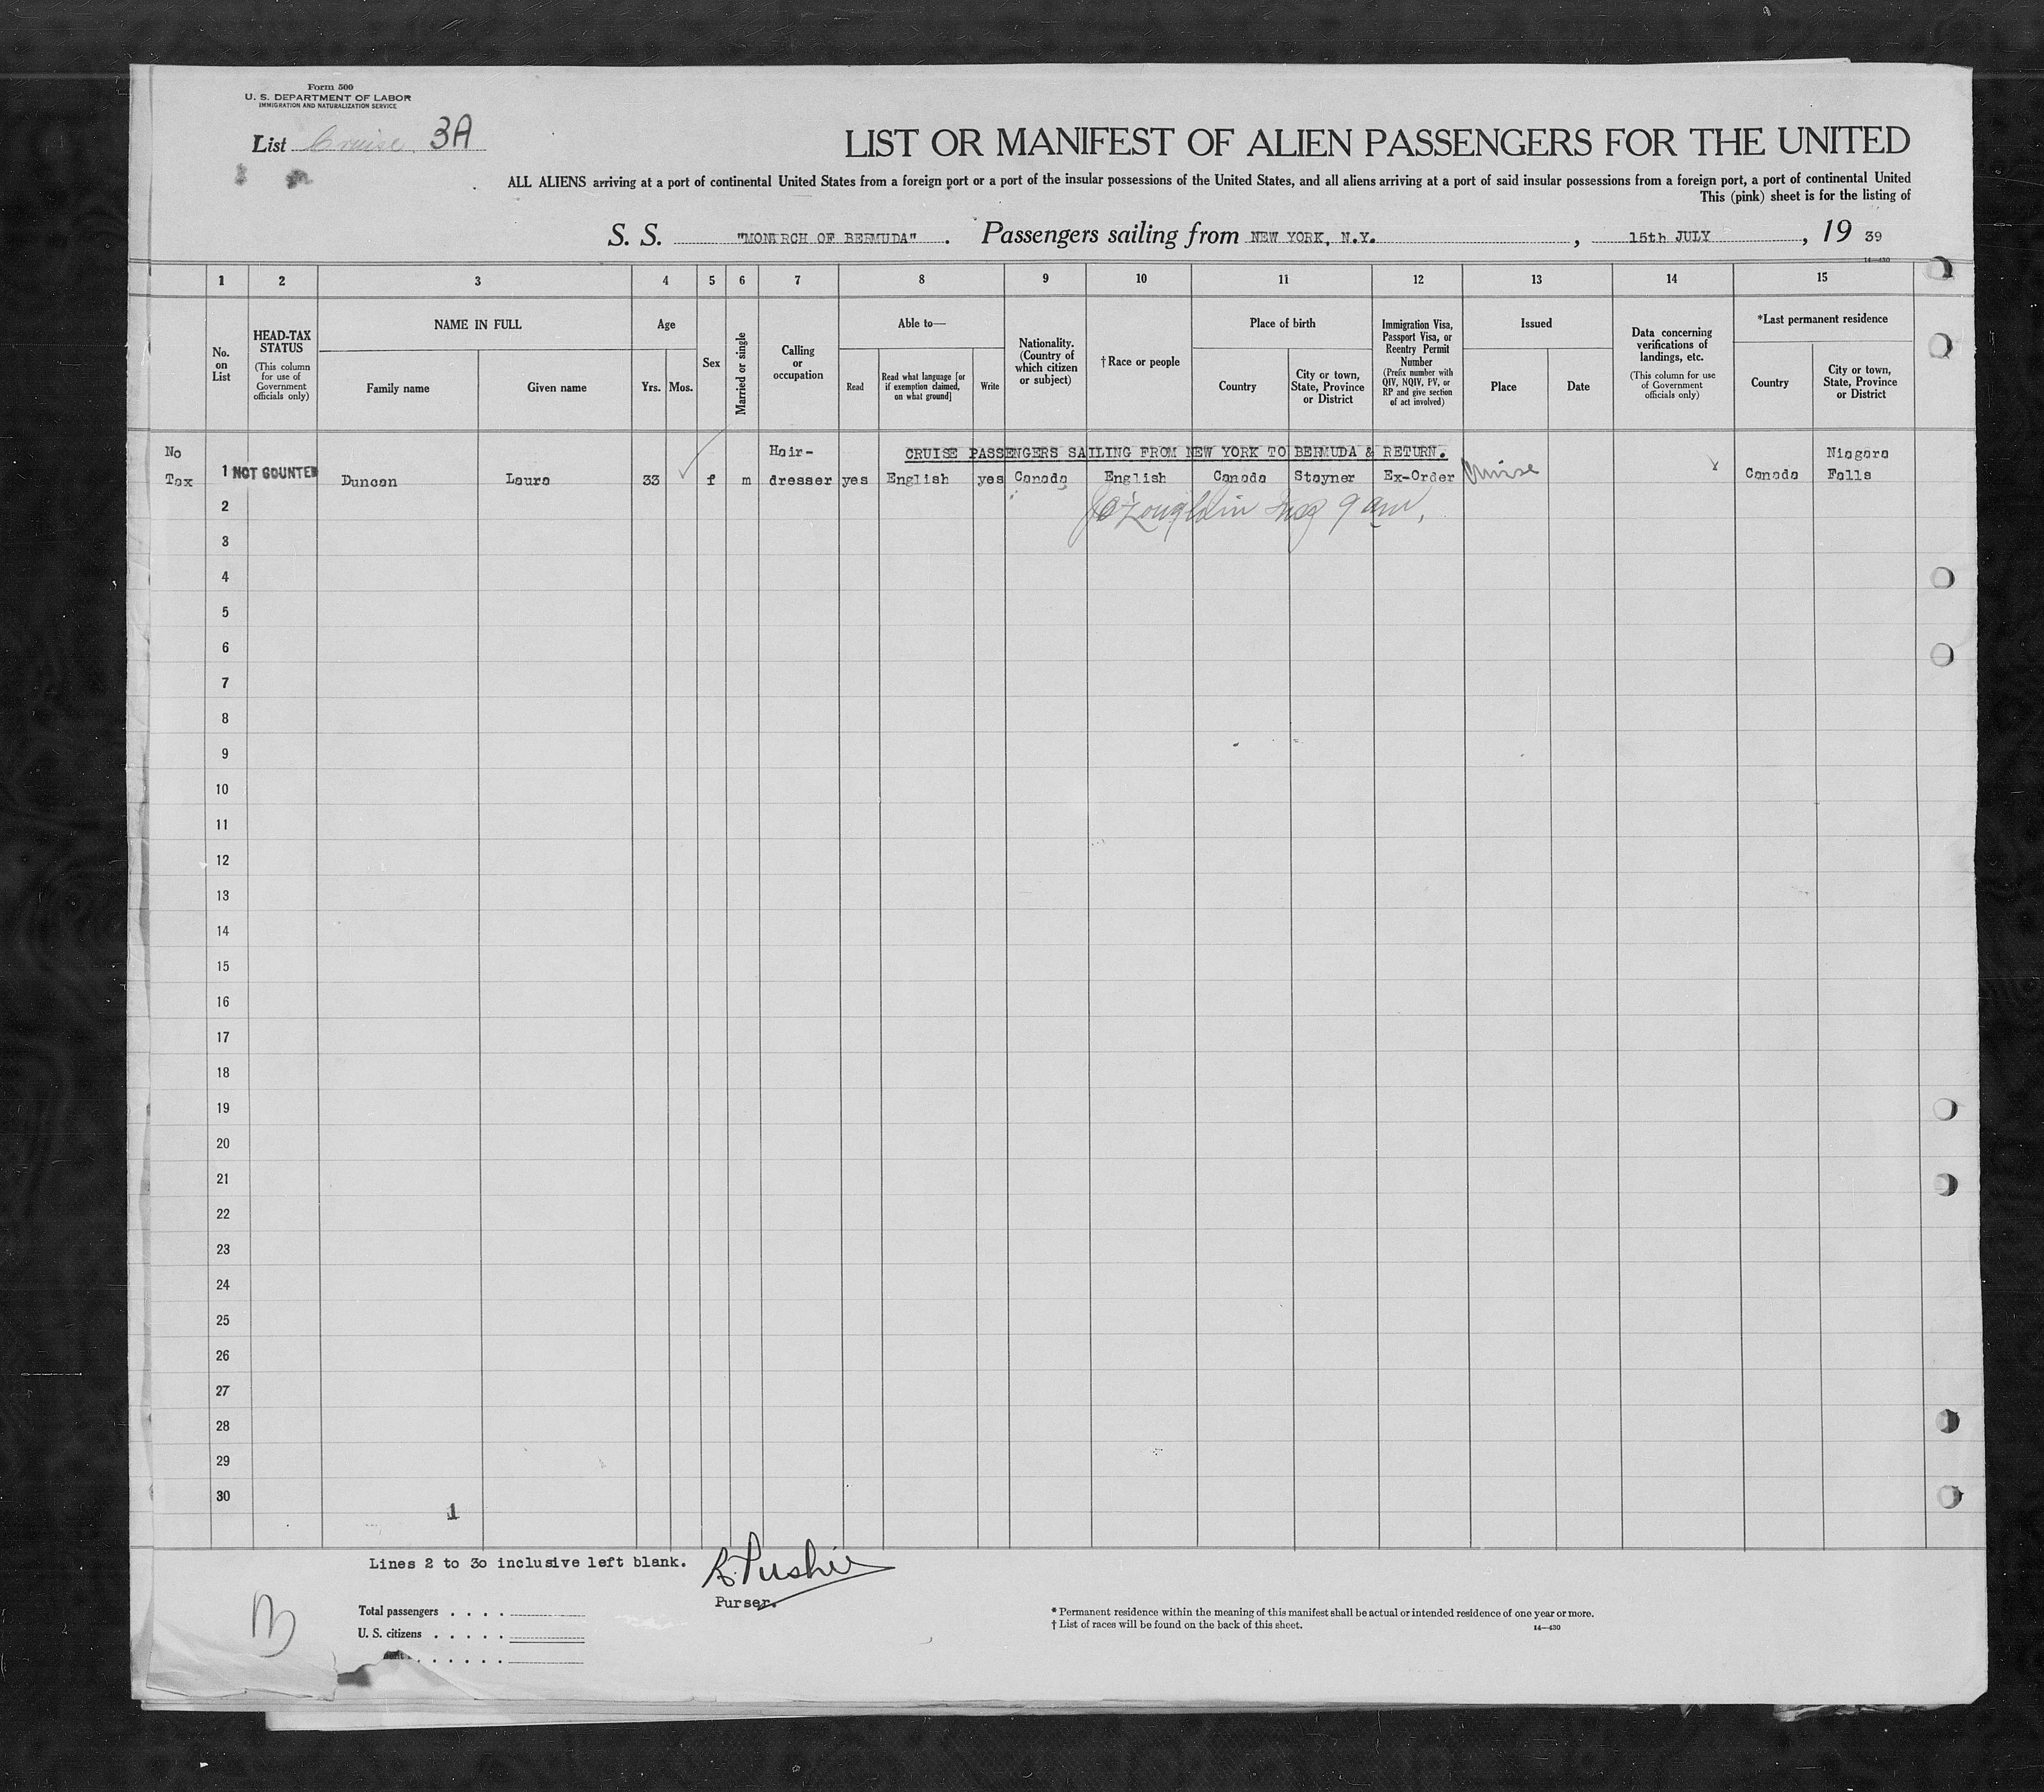 Form 500
U. S. DEPARTMENT OF LABOR
IMMIGRATION AND NATURALIZATION SERVICE
List Cruise 3A
LIST OR MANIFEST OF ALIEN PASSENGERS FOR THE UNITED
ALL ALIENS arriving at a port of continental United States from a foreign port or a port of the insular possessions of the United States, and all aliens arriving at a port of said insular possessions from a foreign port, a port of continental United
This (pink) sheet is for the listing of
S. S. "MONARCH OF BERMUDA". Passengers sailing from NEW YORK, N.Y., 15th JULY, 19 39
14—430
1 2 3 4 5 6 7 8 9 10 11 12 13 14 15
No. on List
HEAD-TAX STATUS
(This column for use of Government officials only)
NAME IN FULL
Family name
Given name
Age
Yrs. Mos.
Sex
Married or single
Calling or occupation
Able to—
Read
Read what language [or if exemption claimed, on what ground]
Write
Nationality. (Country of which citizen or subject)
† Race or people
Place of birth
Country
City or town, State, Province or District
Immigration Visa, Passport Visa, or Reentry Permit Number
(Prefix number with QIV, NQIV, PV, or RP and give section of act involved)
Issued
Place
Date
Data concerning verifications of landings, etc.
(This column for use of Government officials only)
*Last permanent residence
Country
City or town, State, Province or District
CRUISE PASSENGERS SAILING FROM NEW YORK TO BERMUDA & RETURN.
No Tax 1 NOT COUNTED Duncan Laura 33 f m Hair-dresser yes English yes Canada English Canada Stayner Ex-Order Cruise Canada Niagara Falls
2
3
4
5
6
7
8
9
10
11
12
13
14
15
16
17
18
19
20
21
22
23
24
25
26
27
28
29
30
1
Lines 2 to 30 inclusive left blank.
Purser.
Total passengers
U. S. citizens
* Permanent residence within the meaning of this manifest shall be actual or intended residence of one year or more.
† List of races will be found on the back of this sheet.
14—430